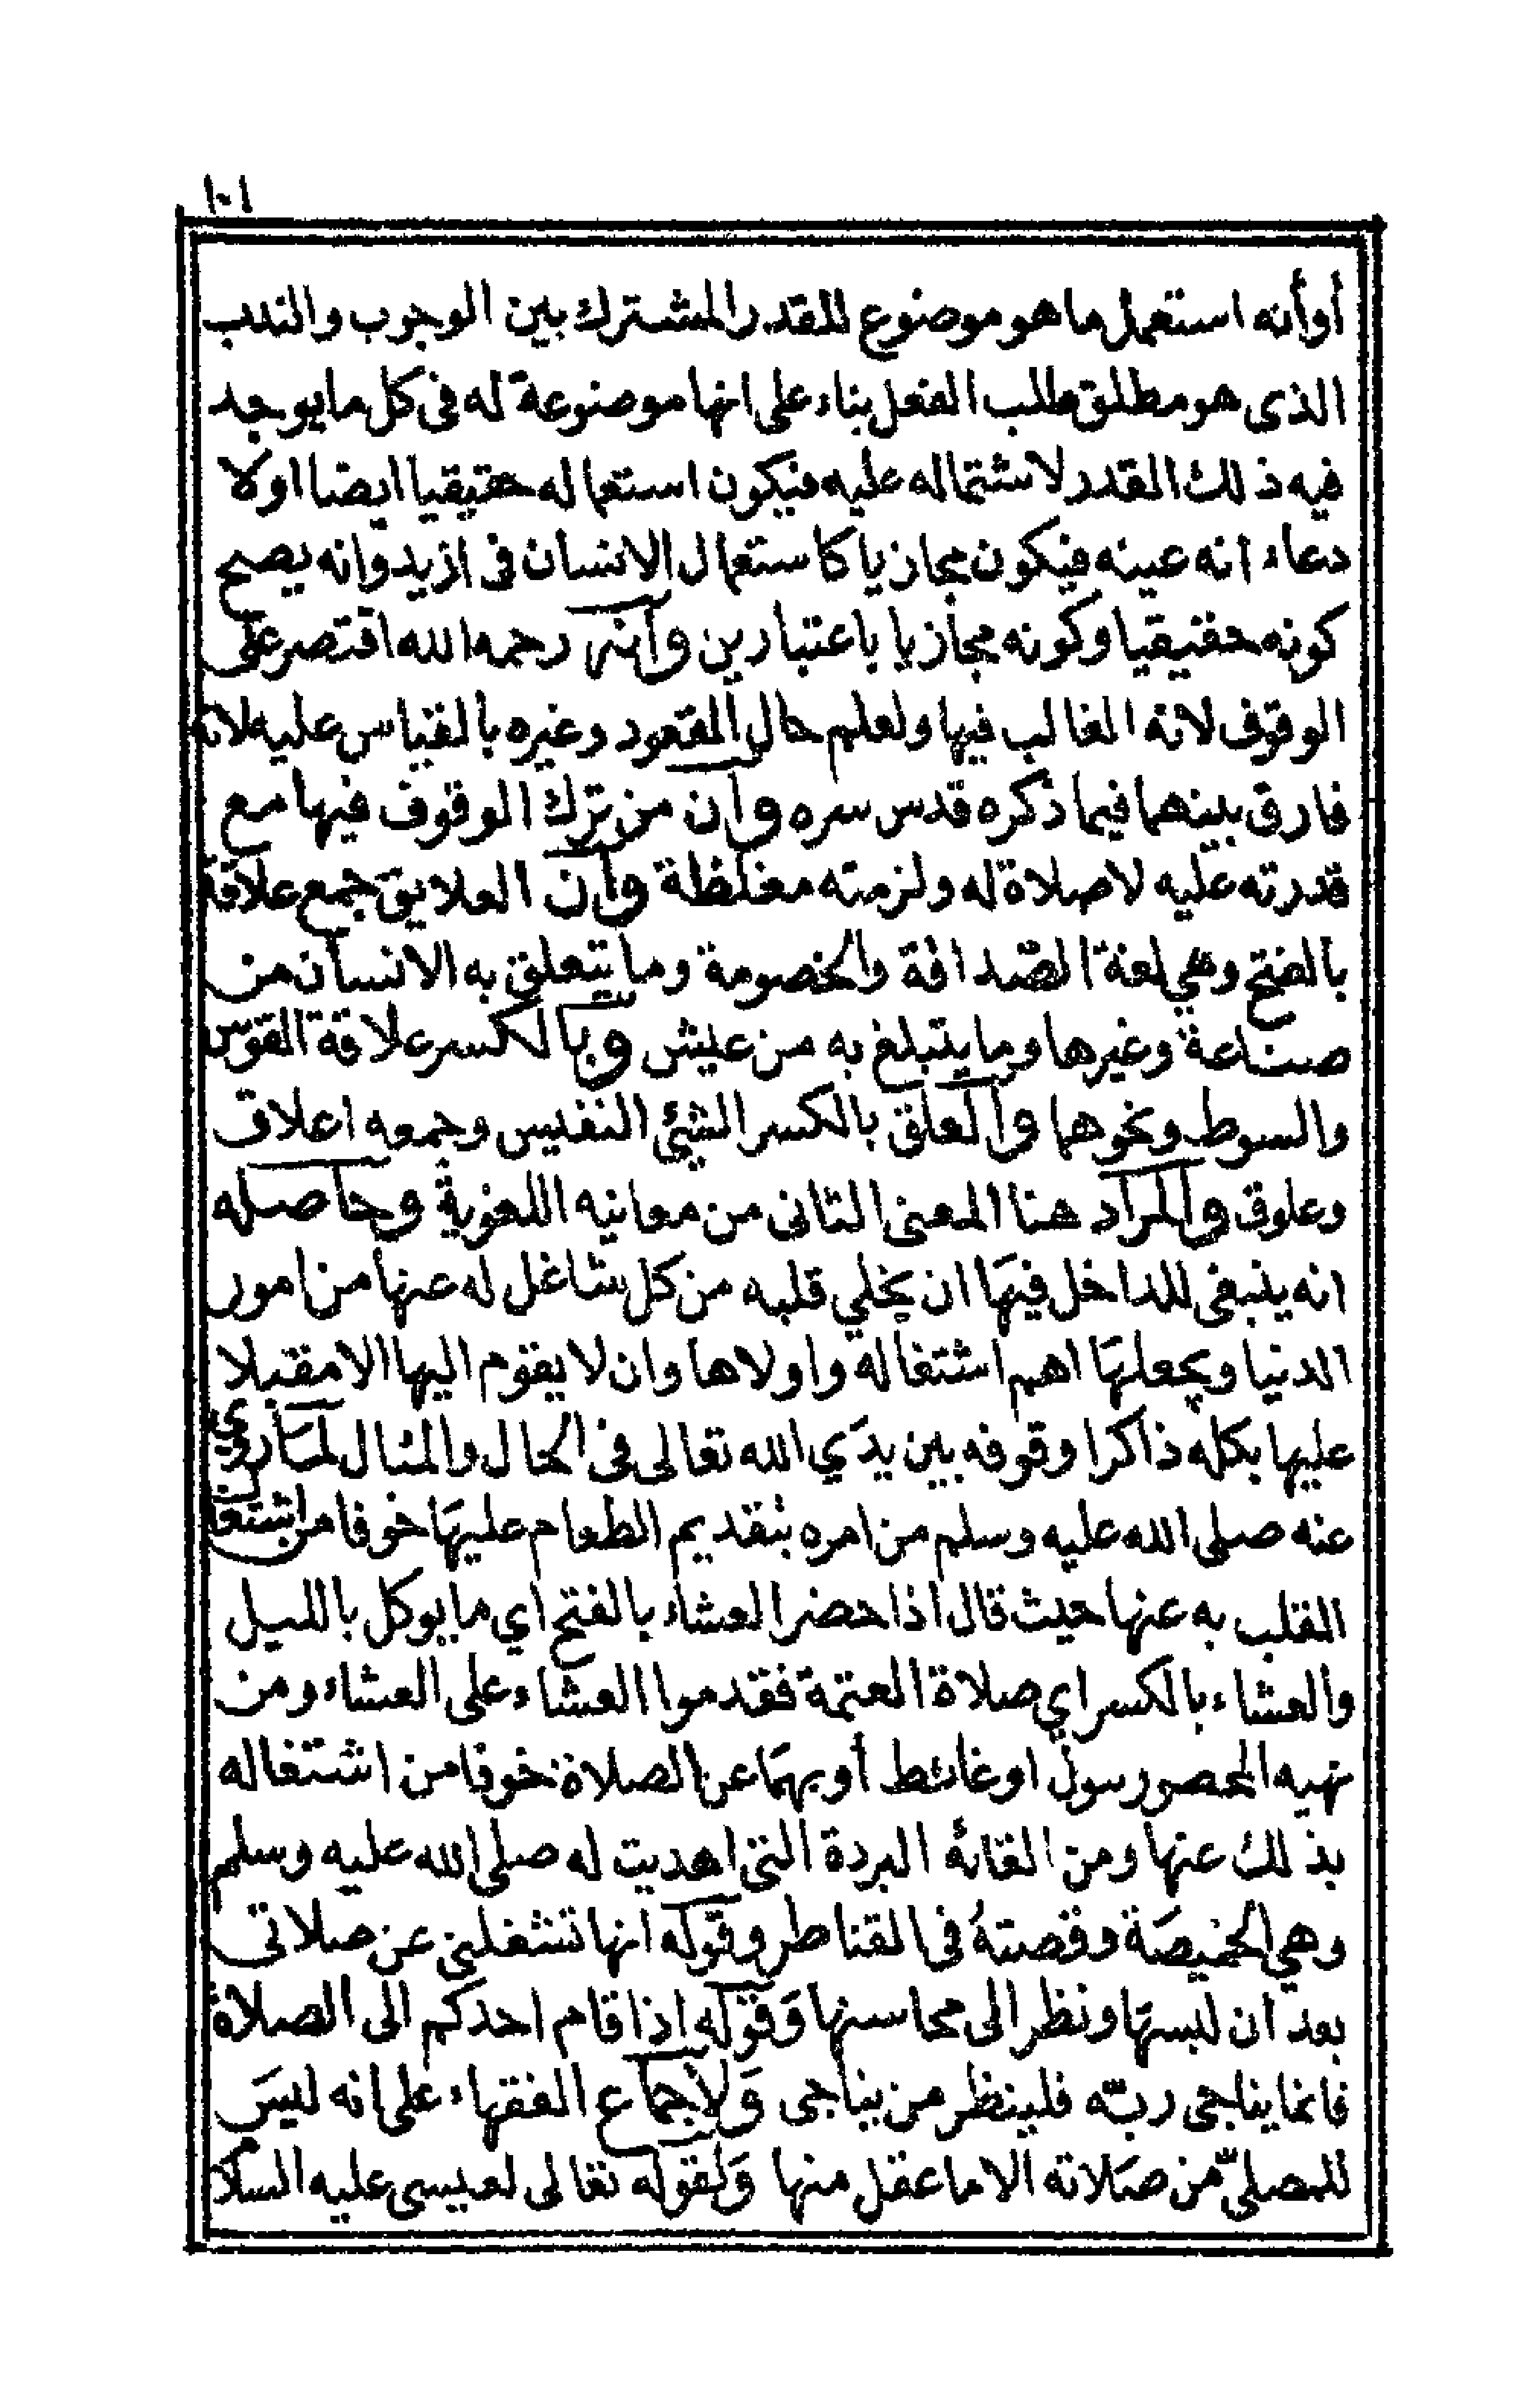 ١٠١
أوأنه استعمل ما هو موضوع للقدر المشترك بين الوجوب والندب
الذى هو مطلق طلب الفعل بناء على انها موضوعة له فى كل ما يوجد
فيه ذلك القدر لاشتماله عليه فيكون استعماله حقيقيا ايضا اولا
دعاء انه عينه فيكون مجازيا كاستعمال الانسان فى ازيد وانه يصح
كونه حقيقيا وكونه مجازيا باعتبارين وأنه رحمه الله اقتصر على
الوقوف لانه الغالب فيها ولعلم حال القعود وغيره بالقياس عليه لانه
فارق بينهما فيما ذكره قدس سره وان من ترك الوقوف فيها مع
قدرته عليه لا صلاة له ولزمته مغلظة وان العلايق جمع علاقة
بالفتح وهي لغة الصداقة والخصومة وما يتعلق به الانسان من
صناعة وغيرها وما يتبلغ به من عيش وبالكسر علاقة القوس
والسوط ونحوهما والعلق بالكسر الشئ النفيس وجمعه اعلاق
وعلوق والمراد هنا المعنى الثانى من معانيه اللغوية وحاصله
انه ينبغى للداخل فيها ان يخلي قلبه من كل شاغل له عنها من امور
الدنيا ويجعلها اهم اشتغاله واولاها وان لا يقوم اليها الا مقبلا
عليها بكله ذاكرا وقوفه بين يدي الله تعالى فى الحال والمثال لما روي
عنه صلى الله عليه وسلم من امره بتقديم الطعام عليها خوفا من اشتغال
القلب به عنها حيث قال اذا حضر العشاء بالفتح اي ما يوكل بالليل
والعشاء بالكسر اي صلاة العتمة فقدموا العشاء على العشاء ومن
نهيه المحصور ببول او غائط أو بهما عن الصلاة خوفا من اشتغاله
بذلك عنها ومن القائه البردة التى اهديت له صلى الله عليه وسلم
وهي الخميصة وقصته فى القناطر وقوله انها تشغلنى عن صلاتى
بعد ان لبسها ونظر الى محاسنها وقوله اذا قام احدكم الى الصلاة
فانما يناجى ربه فلينظر من يناجى ولاجماع الفقهاء على انه ليس
للمصلي من صلاته الا ما عقل منها ولقوله تعالى لعيسى عليه السلام